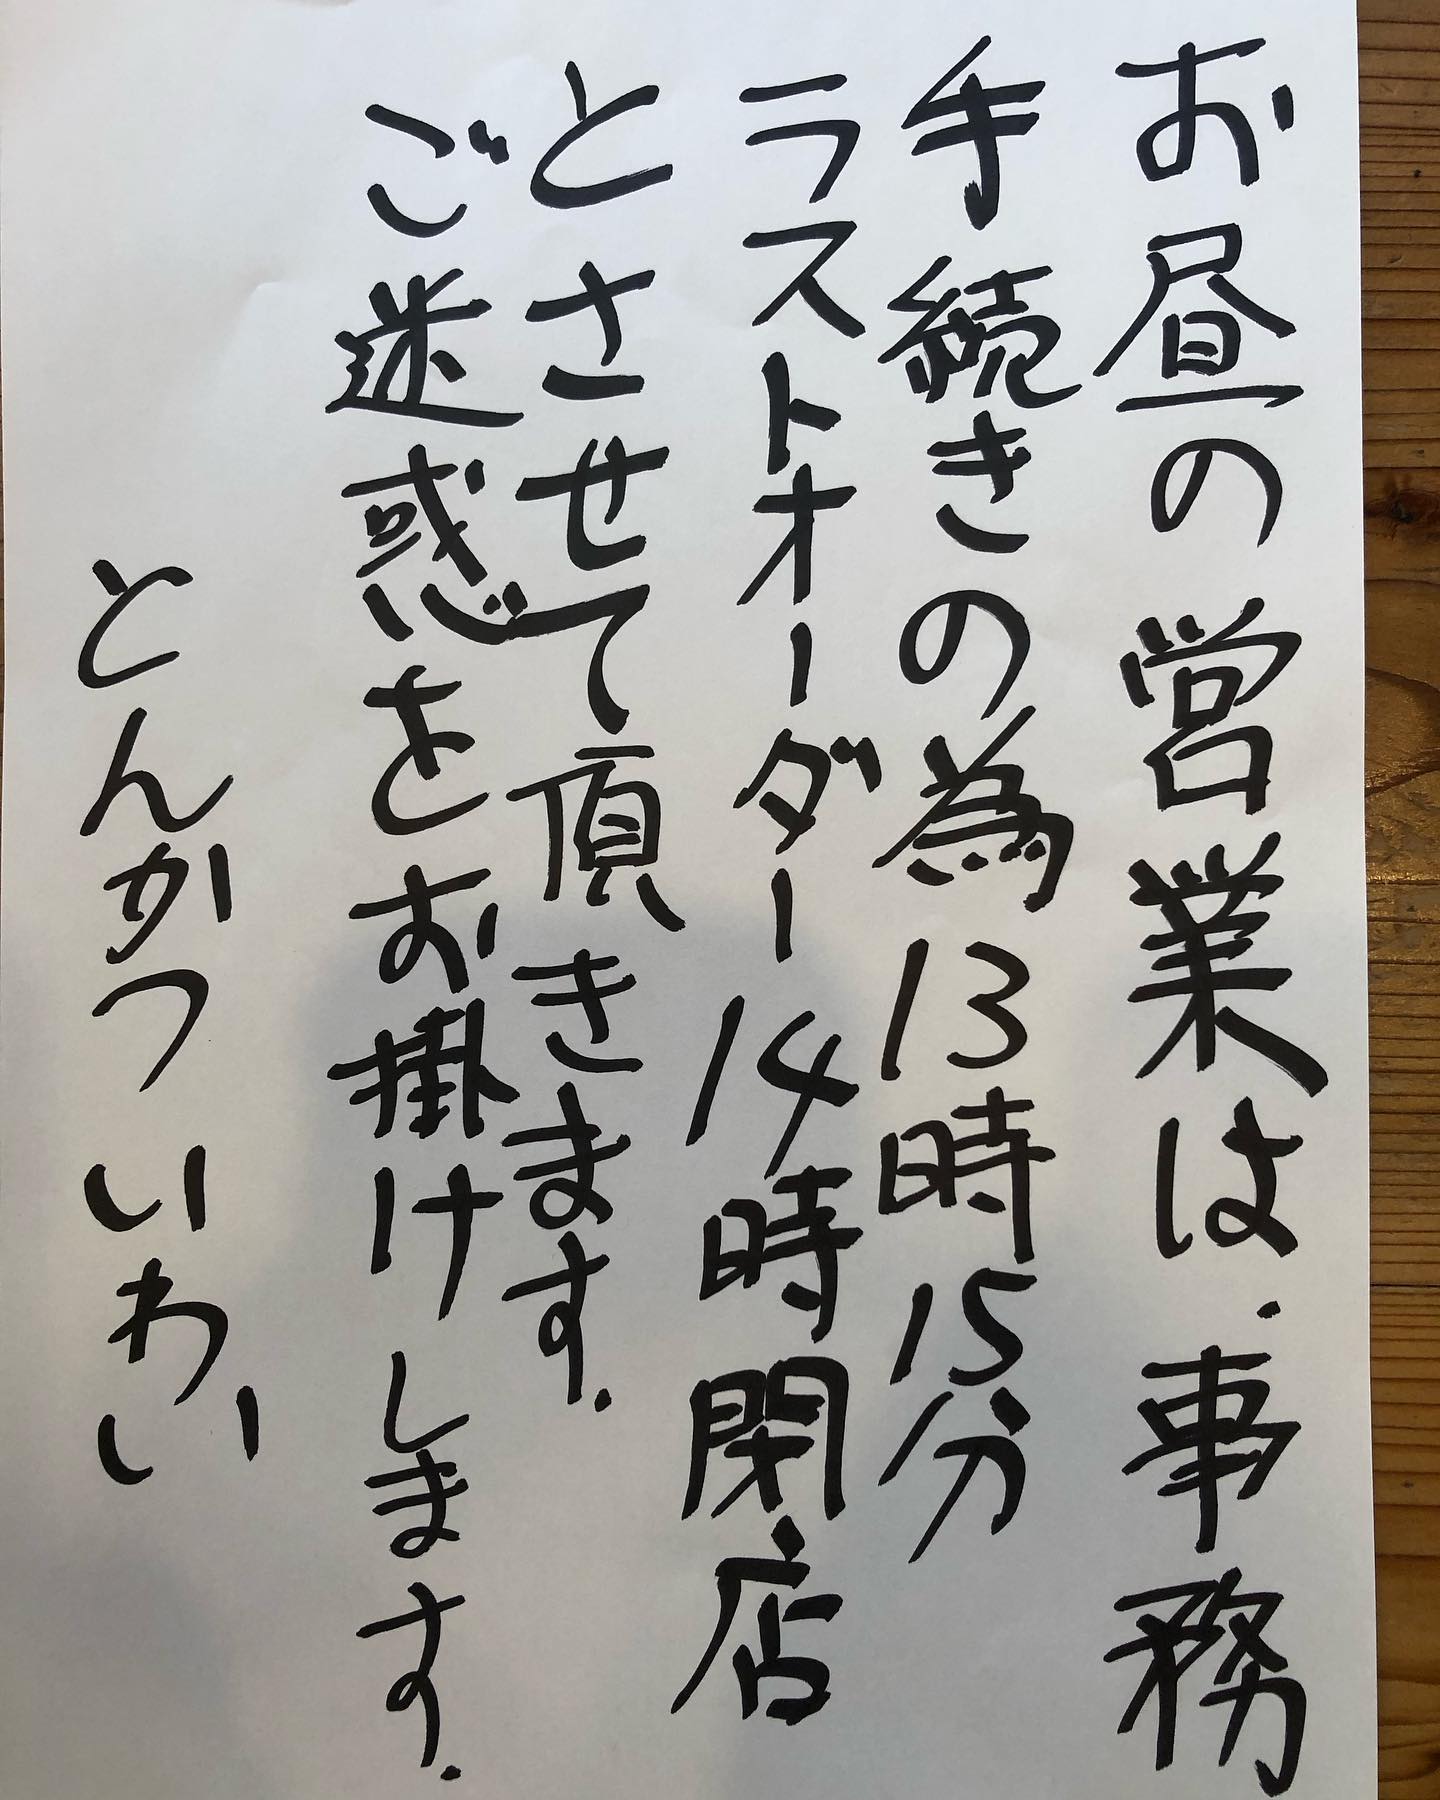 お昼の営業は.事務
手続きの為13時15分
ラストオーダー14時閉店
とさせて頂きます.
ご迷惑をお掛けします.
とんかついわい